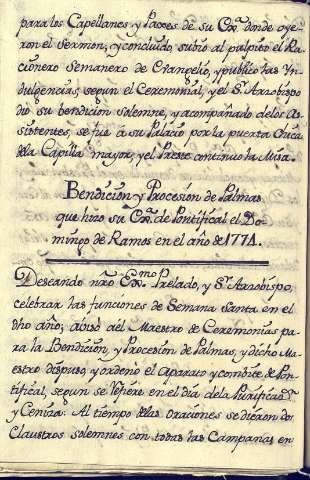 para los Capellanes y Paxes de su Exª. donde oye-
ron el Sermon, y concluido subió al pulpito el Ra-
cionero Semanero de Evangelio, y publicò las Yn-
dulgencias, segun el Ceremonial, y el Sr. Arzobispo
diò su bendicion solemne, y acompañado de los As-
sistentes, se fue à su Palacio por la puerta chica
de la Capilla mayor, y el Preste continuo la Misa.
Bendicion y Procesion de Palmas
que hizo su Exª. de Pontifical el Do-
mingo de Ramos en el año de 1771.
Deseando nrō Exmo. Prelado, y Sr. Arzobispo,
celebrar las funciones de Semana Santa en el
dho año; avisò al Maestro de Ceremonias pa-
ra la Bendicion, y Procesion de Palmas, y dicho Ma-
estro dispuso y ordenò el aparato y combite de Pon-
tifical, segun se refiere en el dia de la Purificacn.
y Ceniza: Al tiempo de las oraciones se dieron dos
Claustros solemnes con todas las Campanas en